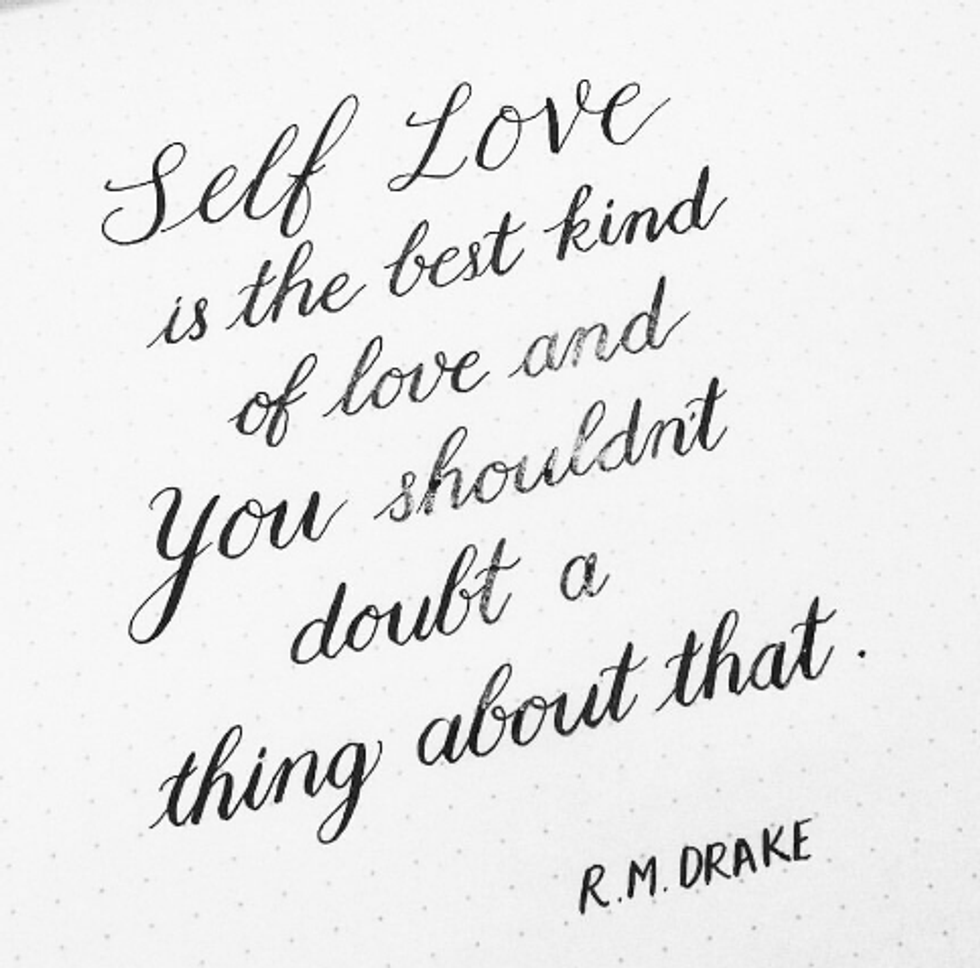 Self Love
is the best kind
of love and
You shouldn't
doubt a
thing about that.
R.M. DRAKE